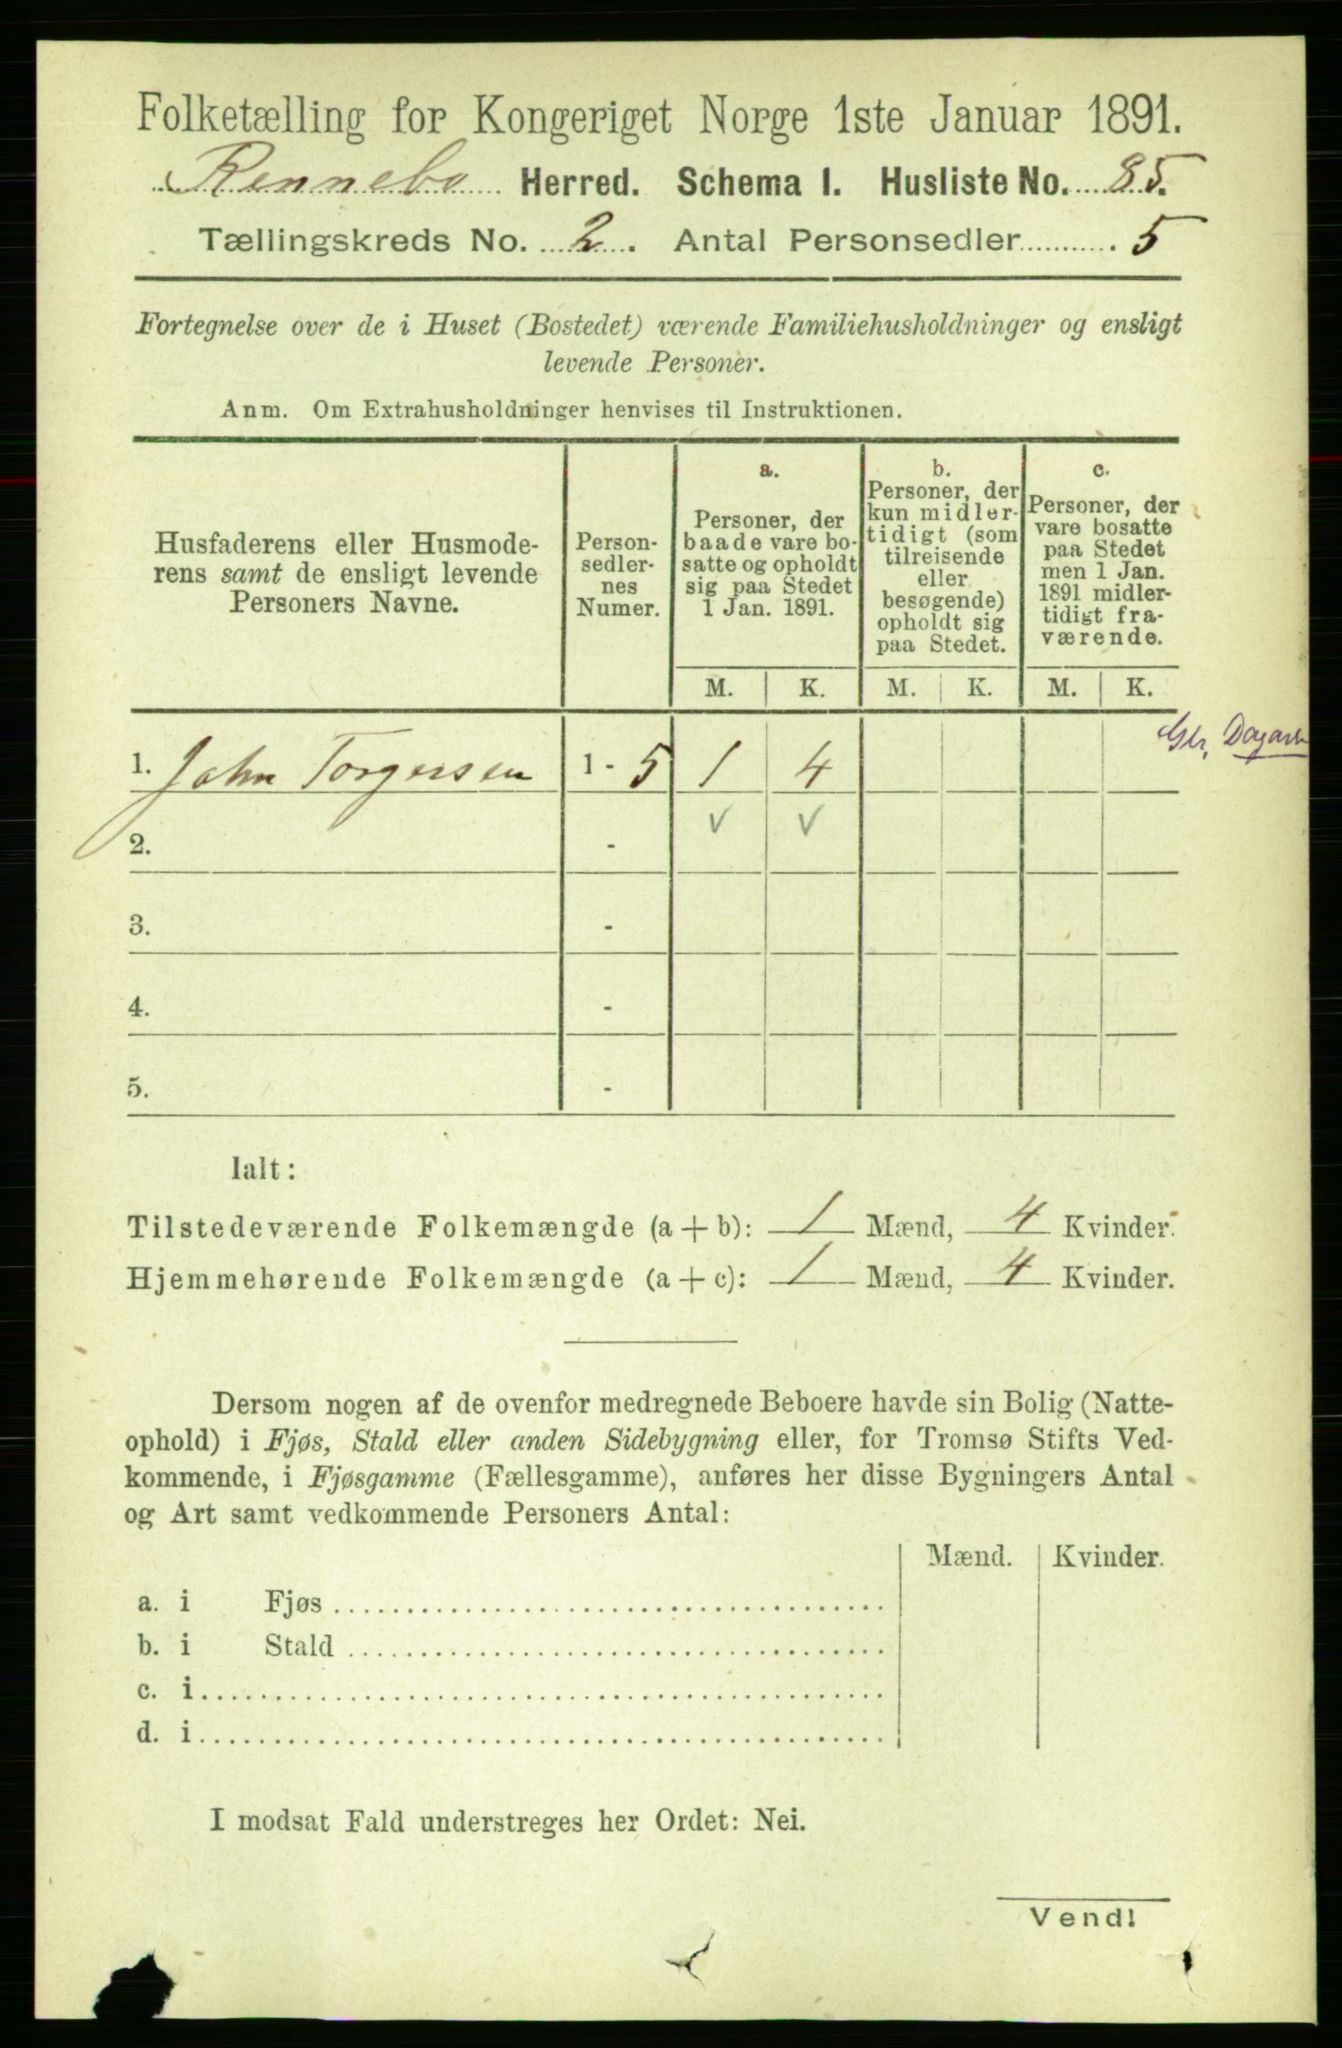 Folketælling for Kongeriget Norge 1ste Januar 1891.
Rennebo Herred. Schema I. Husliste No. 85.
Tællingskreds No. 2. Antal Personsedler 5
Fortegnelse over de i Huset (Bostedet) værende Familiehusholdninger og ensligt
levende Personer.
Anm. Om Extrahusholdninger henvises til Instruktionen.
Husfaderens eller Husmode-
rens samt de ensligt levende
Personers Navne.
Person-
sedler-
nes
Numer.
a.
Personer, der
baade vare bo-
satte og opholdt
sig paa Stedet
1 Jan. 1891.
b.
Personer, der
kun midler-
tidigt (som
tilreisende
eller
besøgende)
opholdt sig
paa Stedet.
c.
Personer, der
vare bosatte
paa Stedet
men 1 Jan.
1891 midler-
tidigt fra-
værende.
M. K. M. K. M. K.
1. John Torgersen 1 - 5 1 4
2. - ✓ ✓
3. -
4. -
5. -
Ialt:
Tilstedeværende Folkemængde (a + b): 1 Mænd, 4 Kvinder.
Hjemmehørende Folkemængde (a + c): 1 Mænd, 4 Kvinder.
Dersom nogen af de ovenfor medregnede Beboere havde sin Bolig (Natte-
ophold) i Fjøs, Stald eller anden Sidebygning eller, for Tromsø Stifts Ved-
kommende, i Fjøsgamme (Fællesgamme), anføres her disse Bygningers Antal
og Art samt vedkommende Personers Antal:
Mænd. Kvinder.
a. i Fjøs
b. i Stald
c. i
d. i
I modsat Fald understreges her Ordet: Nei.
Vend!